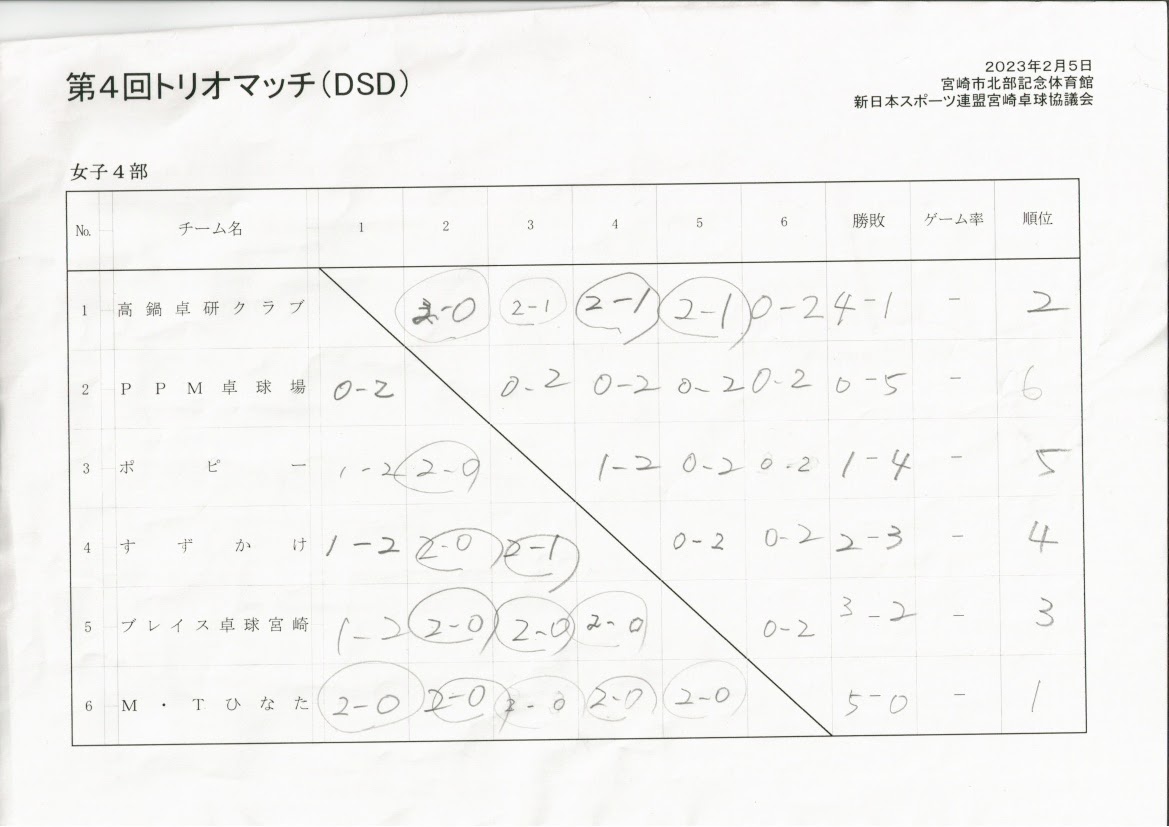 第4回トリオマッチ(DSD)
2023年2月5日
宮崎市北部記念体育館
新日本スポーツ連盟宮崎卓球協議会
女子4部
№ チーム名 1 2 3 4 5 6 勝敗 ゲーム率 順位
1 高鍋卓研クラブ 2-0 2-1 2-1 2-1 0-2 4-1 - 2
2 PPM卓球場 0-2 0-2 0-2 0-2 0-2 0-5 - 6
3 ポピー 1-2 2-0 1-2 0-2 0-2 1-4 - 5
4 すずかけ 1-2 2-0 2-1 0-2 0-2 2-3 - 4
5 ブレイス卓球宮崎 1-2 2-0 2-0 2-0 0-2 3-2 - 3
6 M・Tひなた 2-0 2-0 2-0 2-0 2-0 5-0 - 1